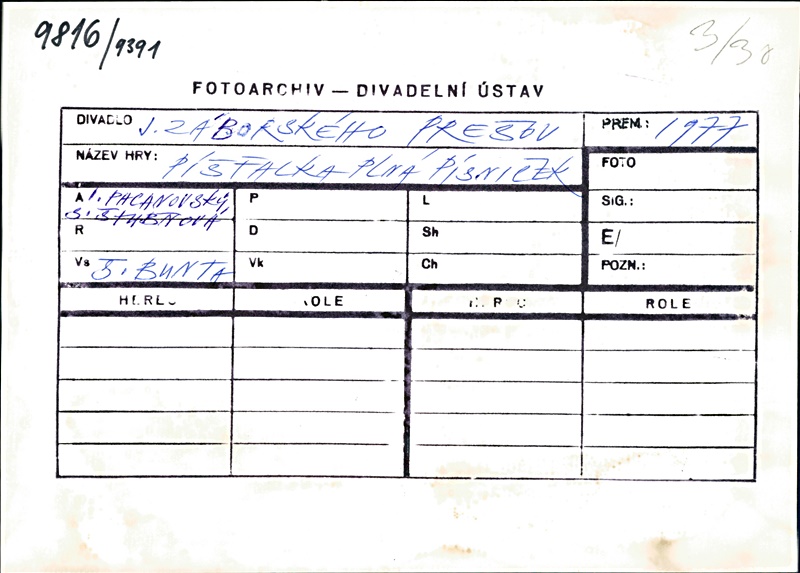 9816/9391
3/38
FOTOARCHIV — DIVADELNÍ ÚSTAV
DIVADLO J. ZÁBORSKÉHO PREŠOV
PREM.: 1977
NÁZEV HRY: PÍŠŤALKA PLNÁ PÍSNIČEK
FOTO
A I. PACANOVSKÝ,
S. ŠTUBŇOVÁ
P
L
SIG.:
R
D
Sh
E/
Vs Š. BUNTA
Vk
Ch
POZN.:
HEREC ROLE HEREC ROLE